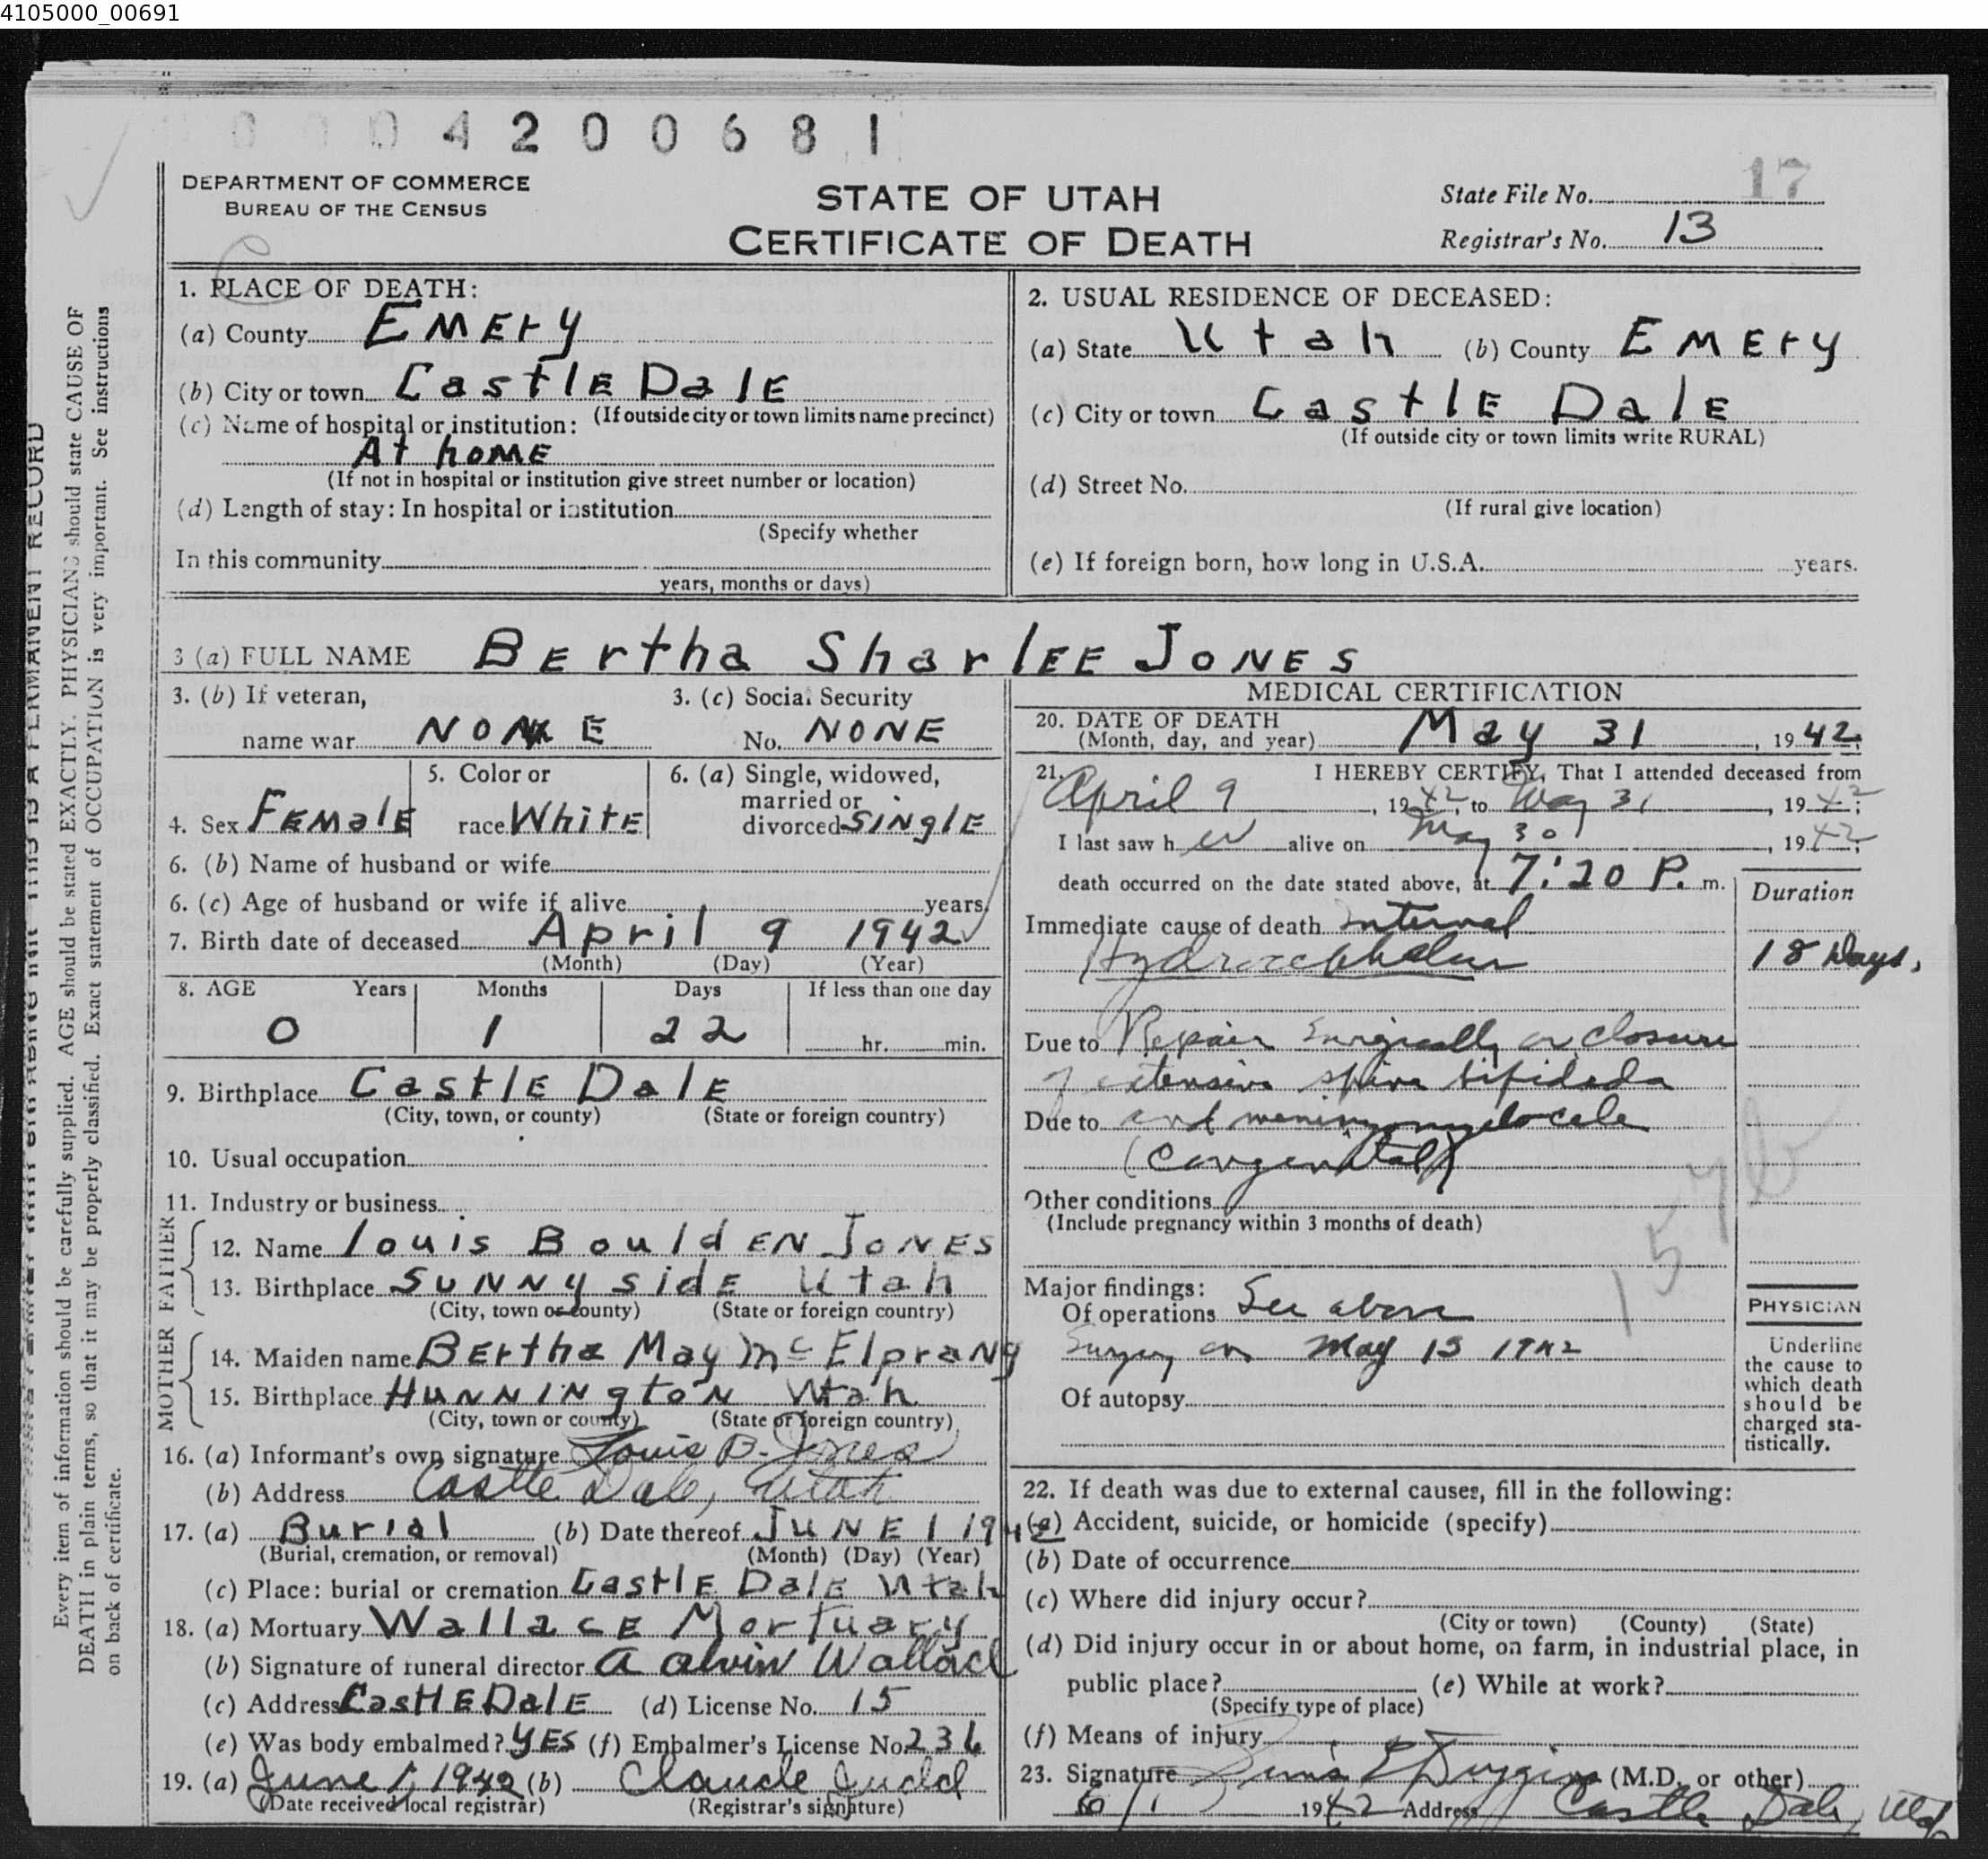 4105000_00691
0004200681
DEPARTMENT OF COMMERCE
BUREAU OF THE CENSUS
STATE OF UTAH
CERTIFICATE OF DEATH
State File No. 17
Registrar's No. 13
1. PLACE OF DEATH:
(a) County EMEry
(b) City or town CastlE DalE
(If outside city or town limits name precinct)
(c) Name of hospital or institution:
At hOME
(If not in hospital or institution give street number or location)
(d) Length of stay: In hospital or institution
(Specify whether
In this community
years, months or days)
2. USUAL RESIDENCE OF DECEASED:
(a) State Utah (b) County EMEry
(c) City or town CastlE DalE
(If outside city or town limits write RURAL)
(d) Street No.
(If rural give location)
(e) If foreign born, how long in U.S.A. years.
3 (a) FULL NAME BErtha SharlEE JONES
3. (b) If veteran,
name war NONE
3. (c) Social Security
No. NONE
4. Sex FEMalE
5. Color or
race WhitE
6. (a) Single, widowed,
married or
divorced SiNglE
6. (b) Name of husband or wife
6. (c) Age of husband or wife if alive years
7. Birth date of deceased April 9 1942
(Month) (Day) (Year)
8. AGE Years Months Days If less than one day
0 1 22 hr. min.
9. Birthplace CastlE DalE
(City, town, or county) (State or foreign country)
10. Usual occupation
11. Industry or business
FATHER
12. Name louis BouldEN JONES
13. Birthplace SUNNysidE Utah
(City, town or county) (State or foreign country)
MOTHER
14. Maiden name BErtha May McElpraNg
15. Birthplace HUNNINgtoN Utah
(City, town or county) (State or foreign country)
16. (a) Informant's own signature Louis B. Jones
(b) Address Castle Dale, Utah
17. (a) Burial (b) Date thereof JUNE 1 1942
(Burial, cremation, or removal) (Month) (Day) (Year)
(c) Place: burial or cremation CastlE DalE Utah
18. (a) Mortuary WallacE Mortuary
(b) Signature of funeral director A Alvin Wallace
(c) Address CastlEDalE (d) License No. 15
(e) Was body embalmed? YES (f) Embalmer's License No. 236
19. (a) June 1, 1942 (b) Claude Judd
(Date received local registrar) (Registrar's signature)
MEDICAL CERTIFICATION
20. DATE OF DEATH
(Month, day, and year) May 31, 1942
21. I HEREBY CERTIFY, That I attended deceased from
April 9, 1942 to May 31, 1942;
I last saw her alive on May 30, 1942;
death occurred on the date stated above, at 7:20 P. m.
Duration
Immediate cause of death Internal
Hydrocephalus
18 Days,
Due to Repair surgically or closure
of extensive spina bifida
Due to and meningomyelocele
(congenital)
157b
Other conditions
(Include pregnancy within 3 months of death)
Major findings:
Of operations See above
Surgery on May 13 1942
Of autopsy
PHYSICIAN
Underline
the cause to
which death
should be
charged sta-
tistically.
22. If death was due to external causes, fill in the following:
(a) Accident, suicide, or homicide (specify)
(b) Date of occurrence
(c) Where did injury occur?
(City or town) (County) (State)
(d) Did injury occur in or about home, on farm, in industrial place, in
public place? (e) While at work?
(Specify type of place)
(f) Means of injury
23. Signature Duggins (M.D. or other)
6/1 1942 Address Castle Dale, Utah
Every item of information should be carefully supplied. AGE should be stated EXACTLY. PHYSICIANS should state CAUSE OF
DEATH in plain terms, so that it may be properly classified. Exact statement of OCCUPATION is very important. See instructions
on back of certificate.